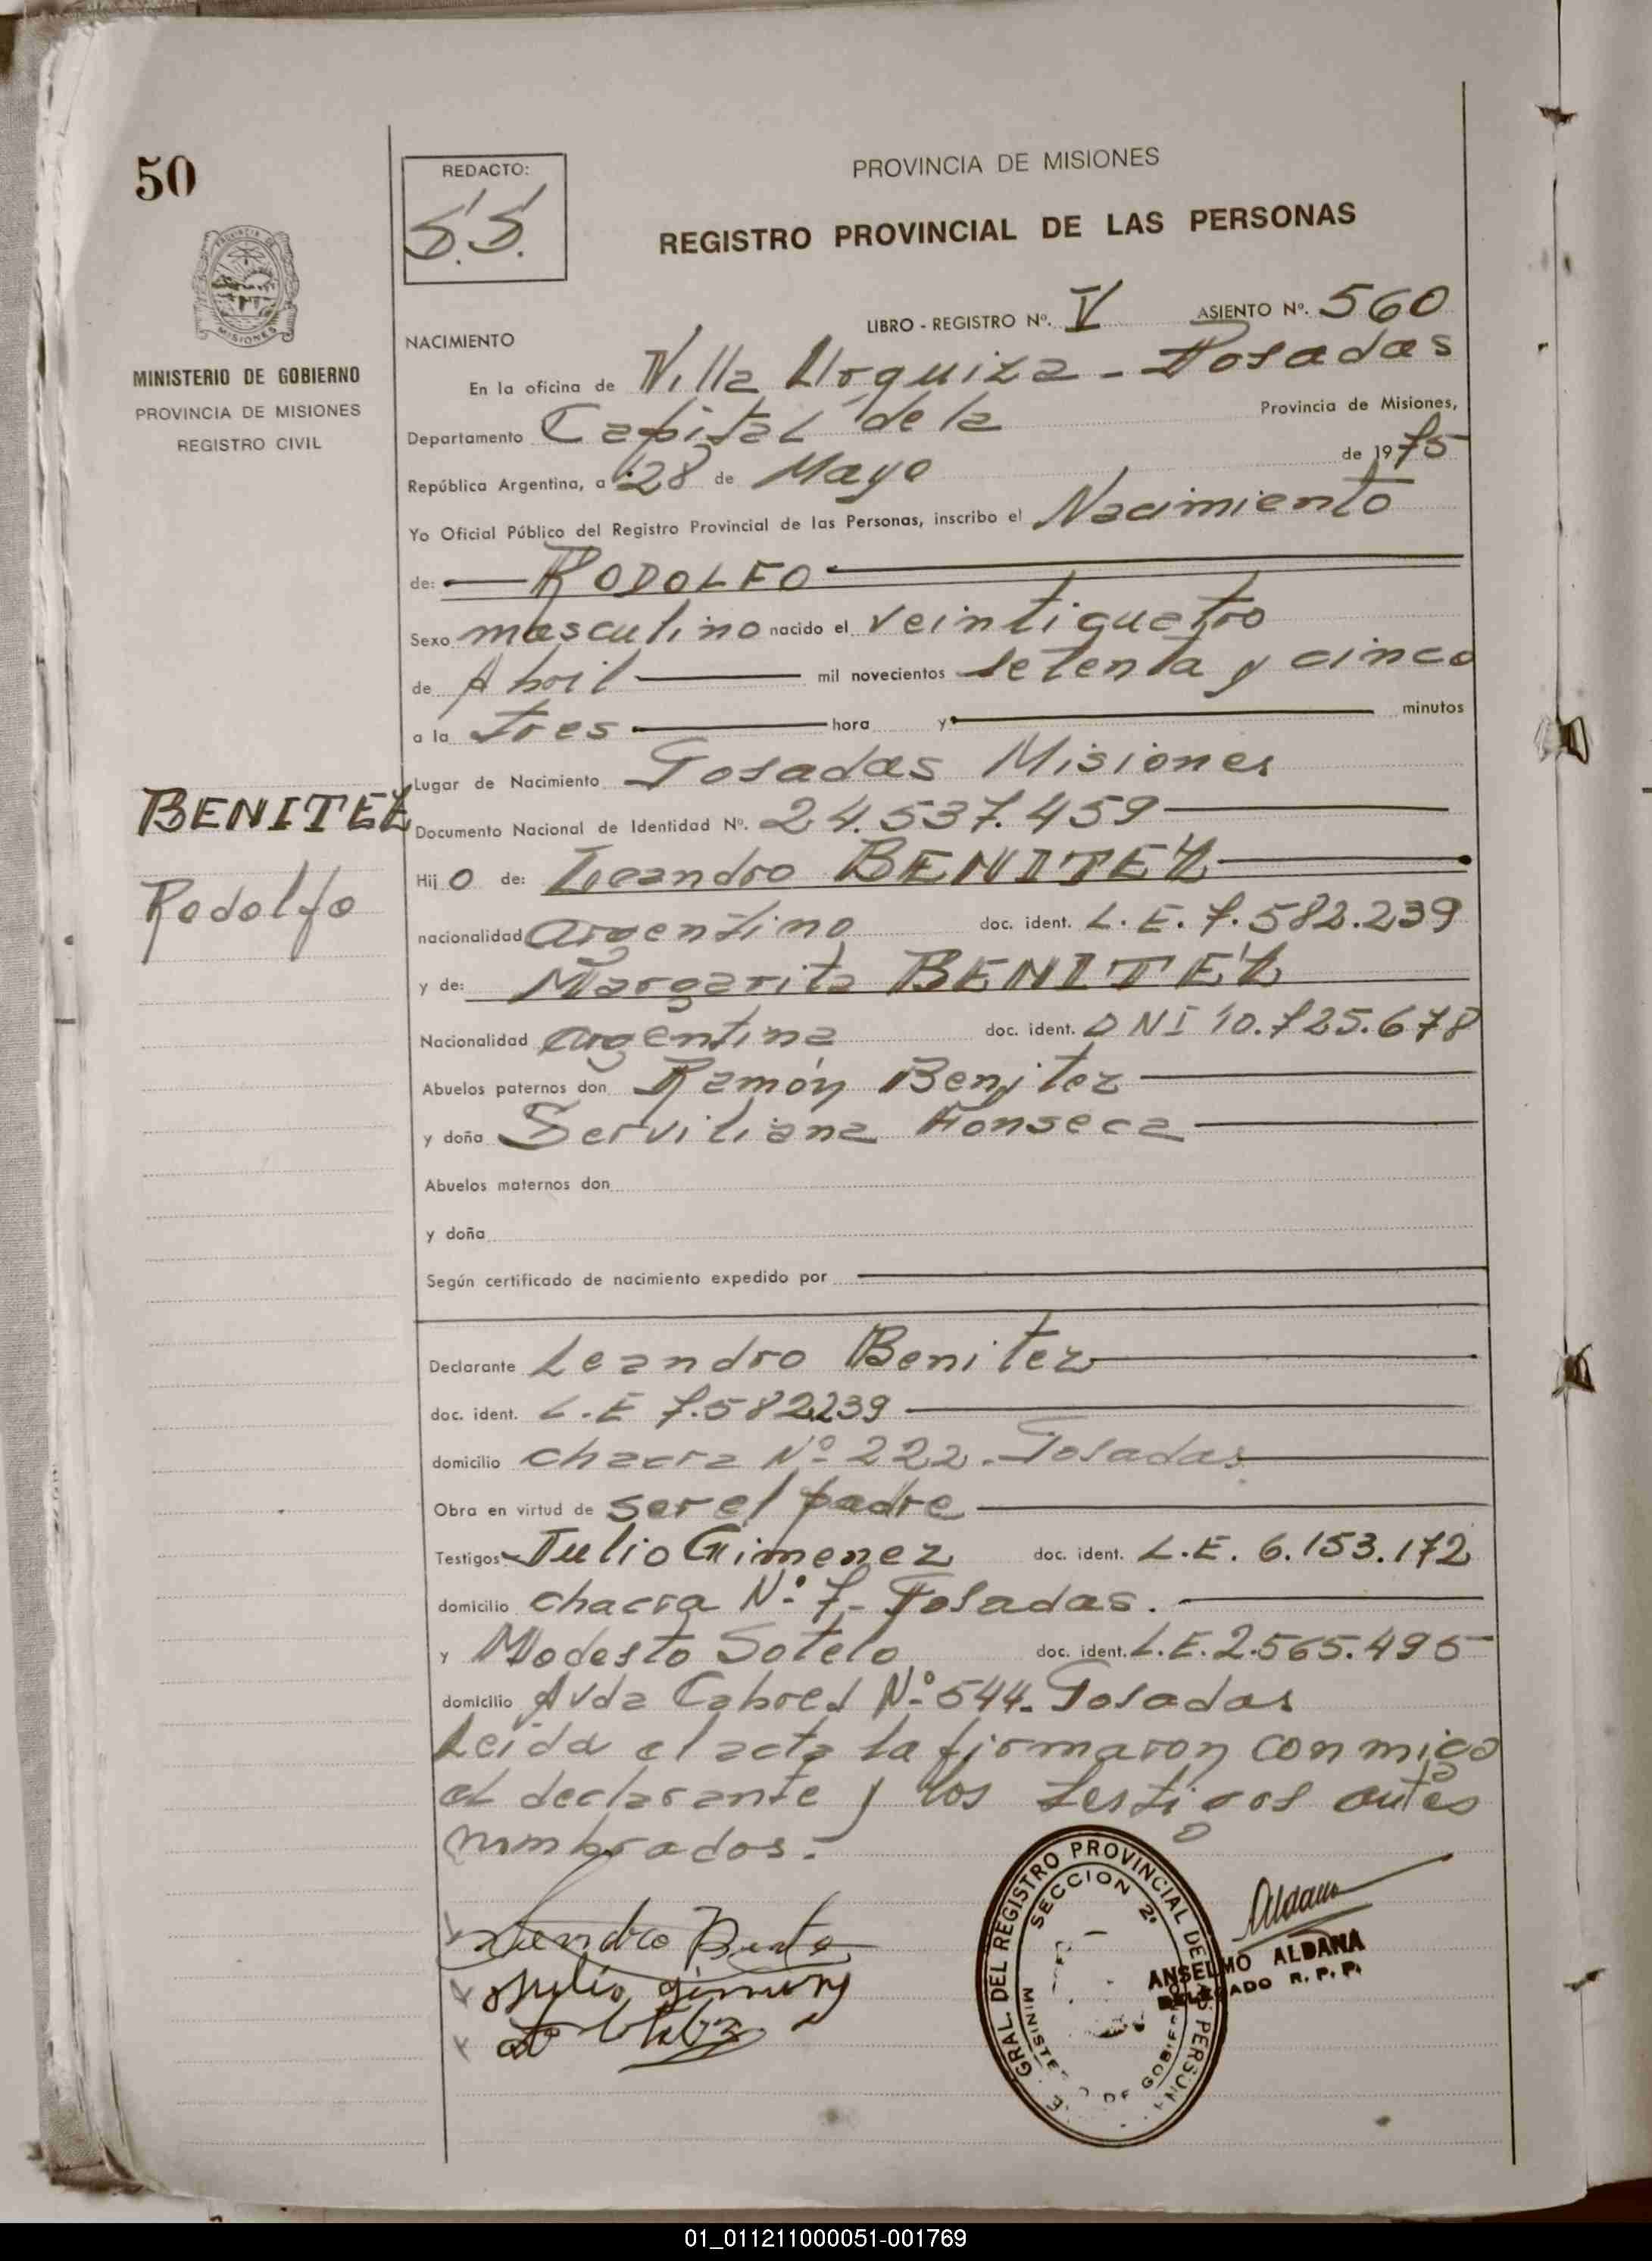 50
REDACTO:
S.S.
PROVINCIA DE MISIONES
REGISTRO PROVINCIAL DE LAS PERSONAS
MINISTERIO DE GOBIERNO
PROVINCIA DE MISIONES
REGISTRO CIVIL
LIBRO - REGISTRO Nº. V ASIENTO Nº. 560
NACIMIENTO
En la oficina de Villa Urquiza - Posadas
Departamento Capital de la Provincia de Misiones,
República Argentina, a 28 de Mayo de 1975
Yo Oficial Público del Registro Provincial de las Personas, inscribo el Nacimiento
de: RODOLFO
Sexo masculino nacido el veintiquatro
de Abril mil novecientos setenta y cinco
a la tres hora y minutos
Lugar de Nacimiento Posadas Misiones
BENITEZ
Rodolfo
Documento Nacional de Identidad Nº. 24.537.459
Hij o de: Leandro BENITEZ
nacionalidad argentino doc. ident. L.E. 7.582.239
y de: Margarita BENITEZ
Nacionalidad argentina doc. ident. DNI 10.725.678
Abuelos paternos don Ramón Benitez
y doña Serviliana Fonseca
Abuelos maternos don
y doña
Según certificado de nacimiento expedido por
Declarante Leandro Benitez
doc. ident. L.E 7.582.239
domicilio chacra Nº 222. Posadas
Obra en virtud de ser el padre
Testigos Julio Gimenez doc. ident. L.E. 6.153.172
domicilio chacra Nº 7- Posadas.
y Modesto Sotelo doc. ident. L.E. 2.565.495
domicilio Avda Cabred Nº 544. Posadas
Leida el acta la firmaron conmigo
el declarante y los testigos antes
nombrados.-
Leandro Benitez
Julio Gimenez
GRAL. DEL REGISTRO PROVINCIAL DE PERSON
SECCION 2ª
MINISTE DE GOBIE
Aldana
ANSELMO ALDANA
DELEGADO R. P. P.
01_011211000051-001769